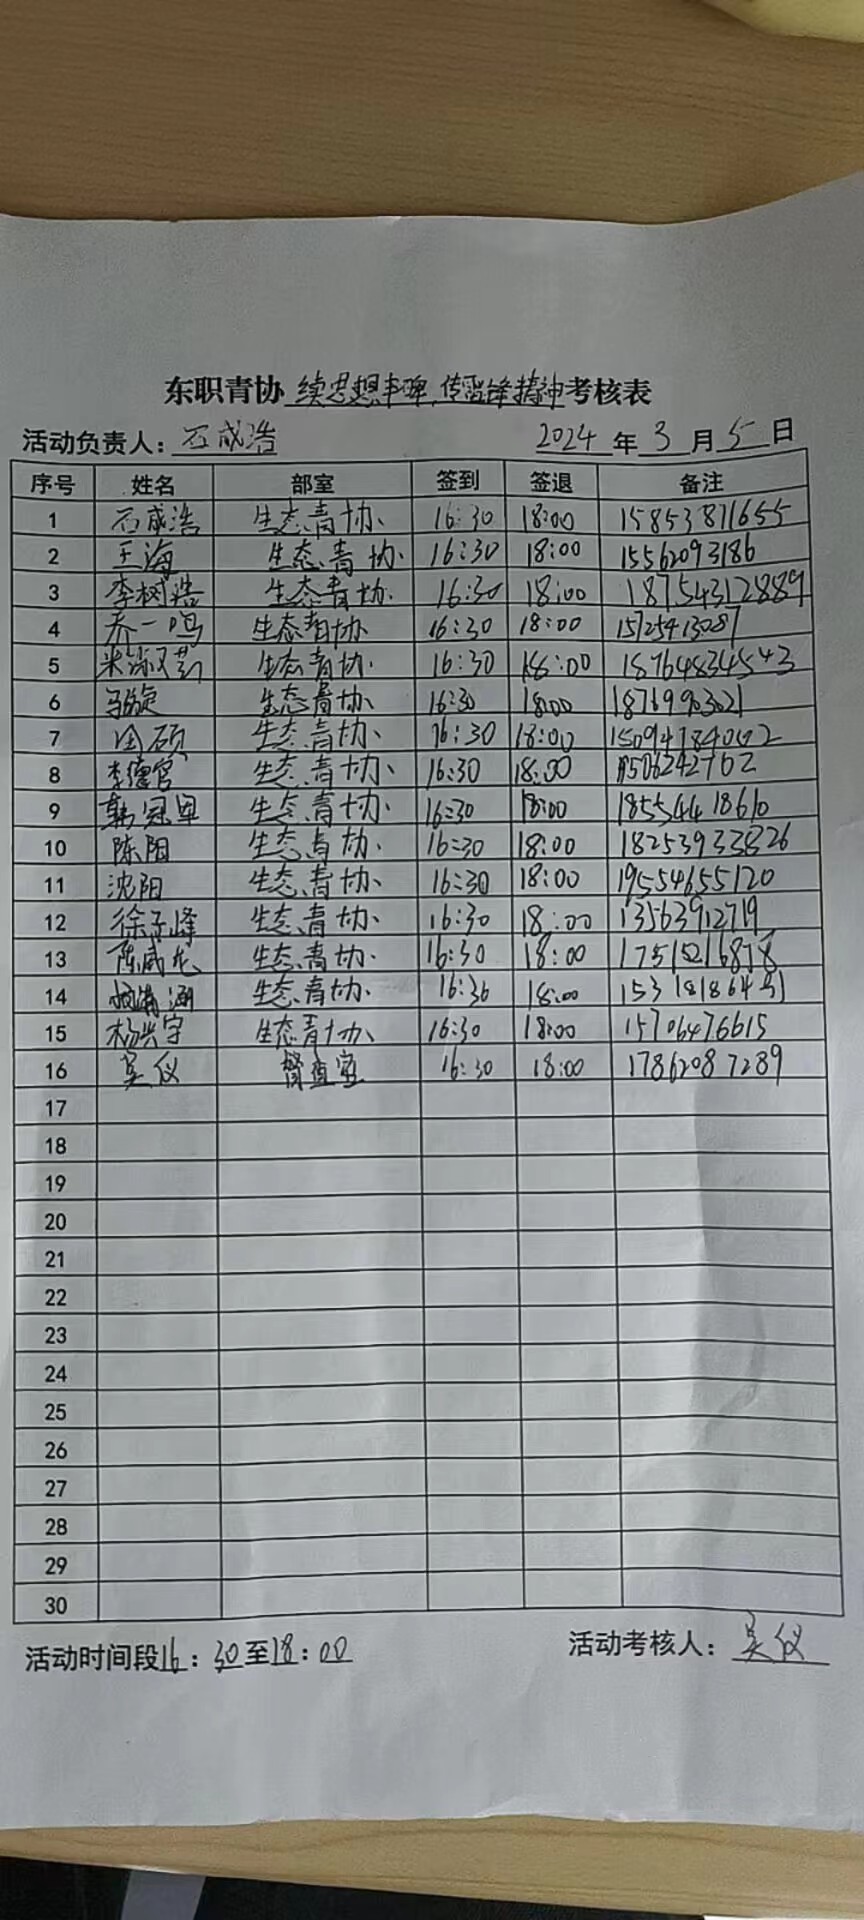 东职青协 续思想丰碑,传雷锋精神 考核表
活动负责人: 石成浩 2024 年 3 月 5 日
序号 姓名 部室 签到 签退 备注
1 石成浩 生态青协 16:30 18:00 15853871655
2 王海 生态青协 16:30 18:00 15562093186
3 李树浩 生态青协 16:30 18:00 18754312889
4 乔一鸣 生态青协 16:30 18:00 15725413087
5 生态青协 16:30 18:00 18764834543
6 生态青协 16:30 18:00 18769903021
7 生态青协 16:30 18:00 15094784002
8 李德官 生态青协 16:30 18:00
9 韩冠军 生态青协 16:30 18:00 18554418610
10 陈阳 生态青协 16:30 18:00 18253933826
11 沈阳 生态青协 16:30 18:00 19554655120
12 徐子峰 生态青协 16:30 18:00 13563912719
13 陈威龙 生态青协 16:30 18:00
14 生态青协 16:30 18:00
15 杨兴宇 生态青协 16:30 18:00 15706476615
16 吴仪 督查室 16:30 18:00 17862087289
17
18
19
20
21
22
23
24
25
26
27
28
29
30
活动时间段 16:30至18:00 活动考核人: 吴仪